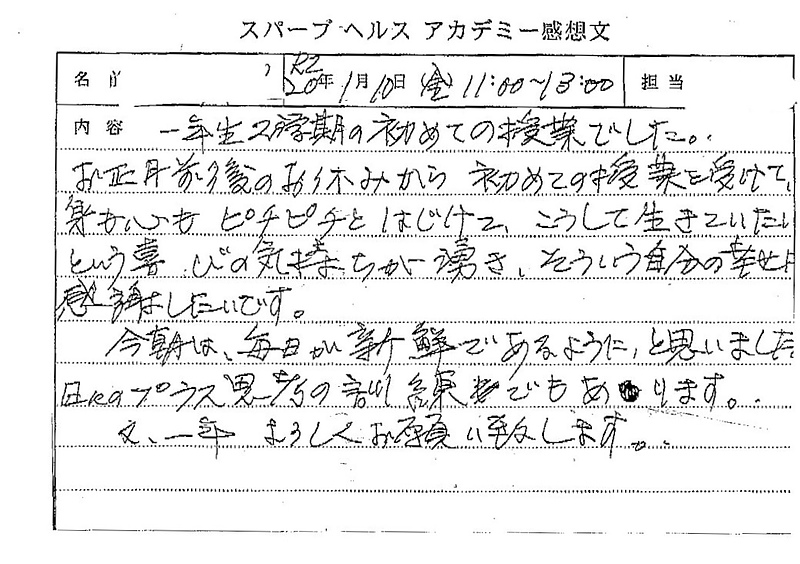 スパーブ ヘルス アカデミー感想文
名前 R2 20年 1月 10日 (金) 11:00~13:00 担当
内容 一年生2学期の初めての授業でした。
お正月前後のお休みから 初めての授業を受けて、
身も心も ピチピチと はじけて、こうして生きていたい
という喜びの気持ちが湧き、そういう自分の幸せに
感謝したいです。
今朝は、毎日が新鮮であるように、と思いました
日々のプラス思考の訓練でもあります。
又、一年 よろしくお願い致します。